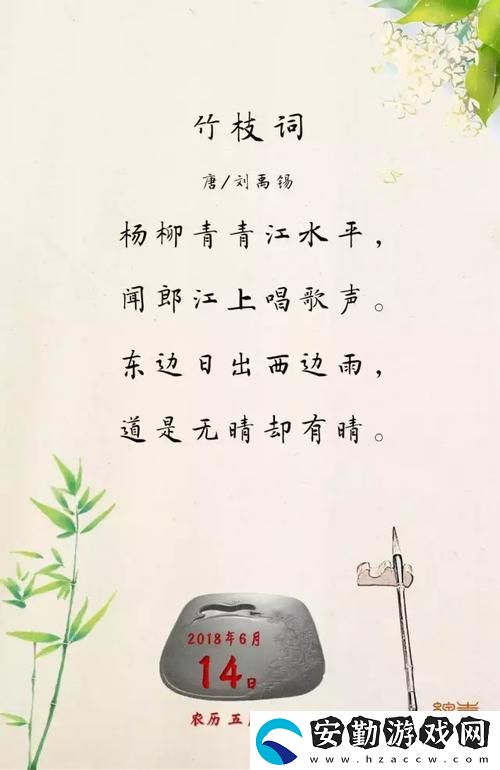 竹枝词
唐/刘禹锡
杨柳青青江水平，
闻郎江上唱歌声。
东边日出西边雨，
道是无晴却有晴。
2018年6月
14日
农历 五
安勤游戏网
www.hzaccw.com